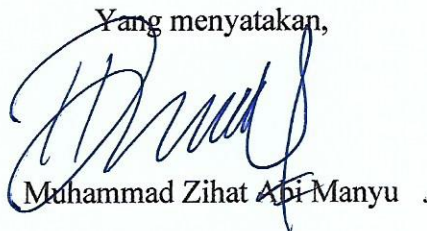 Yang menyatakan,
Muhammad Zihat Abi Manyu .